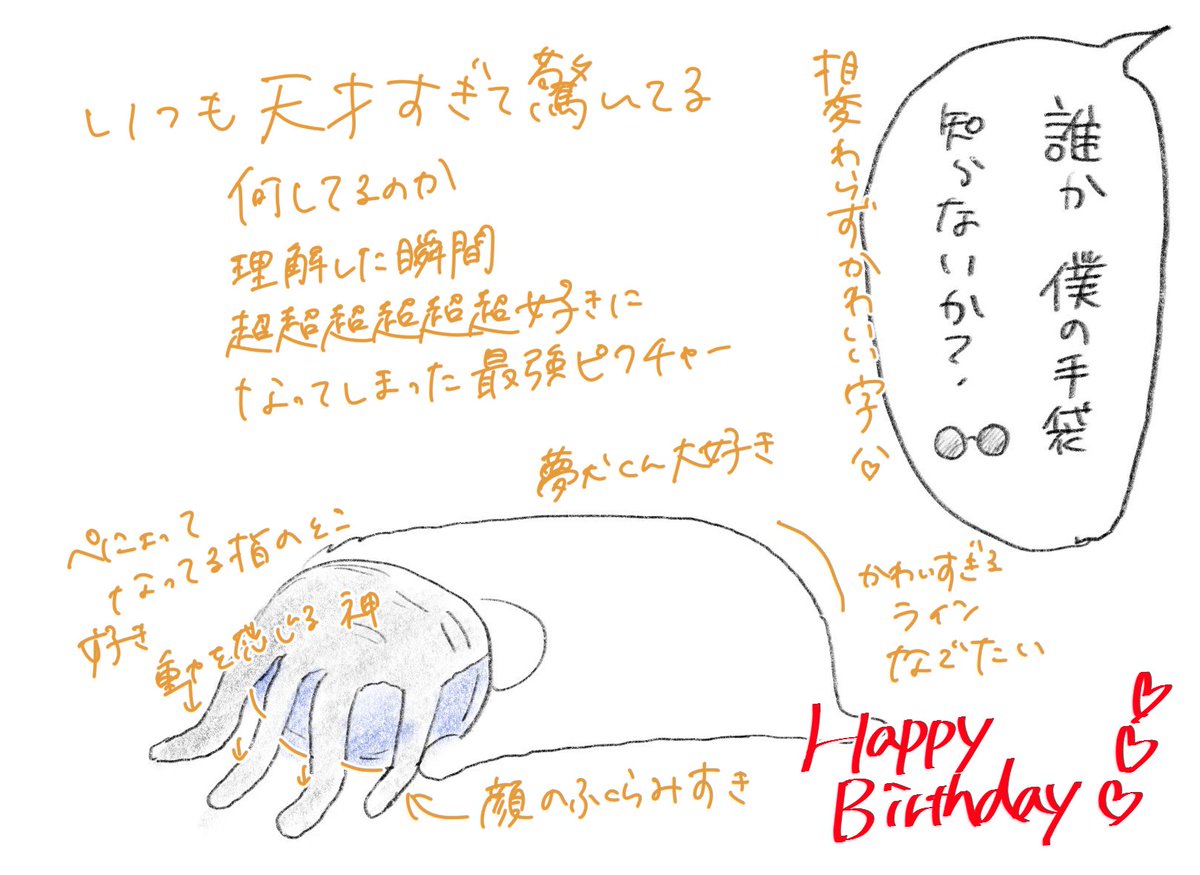 誰か僕の手袋
知らないか?
相変わらずかわいい字
いつも天才すぎて驚いてる
何してるのか
理解した瞬間
超超超超超超好きに
なってしまった最強ピクチャー
夢犬くん大好き
ぺにょって
なってる指のとこ
好き
重力を感じる 神
かわいすぎる
ライン
なでたい
顔のふくらみすき
Happy
Birthday